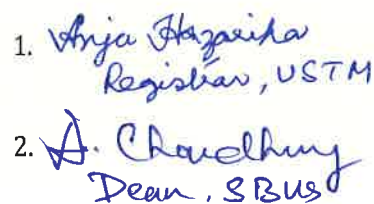 1. Anja Hazarika
Registrar, USTM
2. A. Choudhury
Dean, SBUS